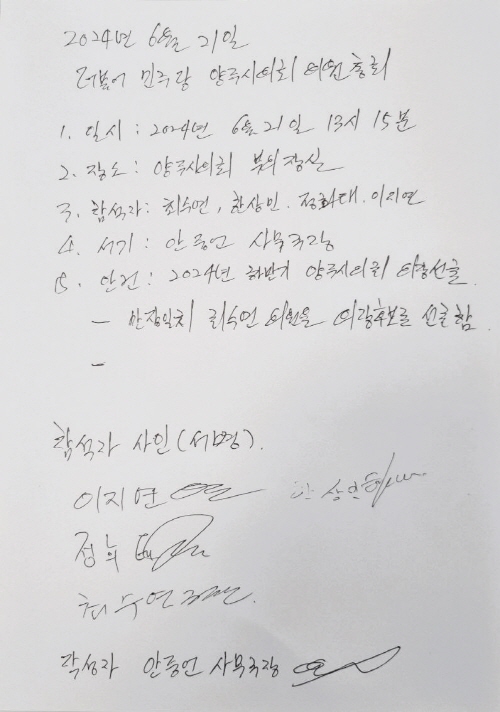 2024년 6월 21일
더불어 민주당 양주시의회 의원총회
1. 일시 : 2024년 6월 21일 13시 15분
2. 장소 : 양주시의회 부의장실
3. 참석자 : 최수연, 한상민, 정희태, 이지연
4. 서기 : 안종언 사무국장
5. 안건 : 2024년 하반기 양주시의회 의장선출.
- 만장일치 최수연 의원을 의장후보로 선출함
-
참석자 사인 (서명).
이지연
한상민
정희태
최수연
작성자 안종언 사무국장